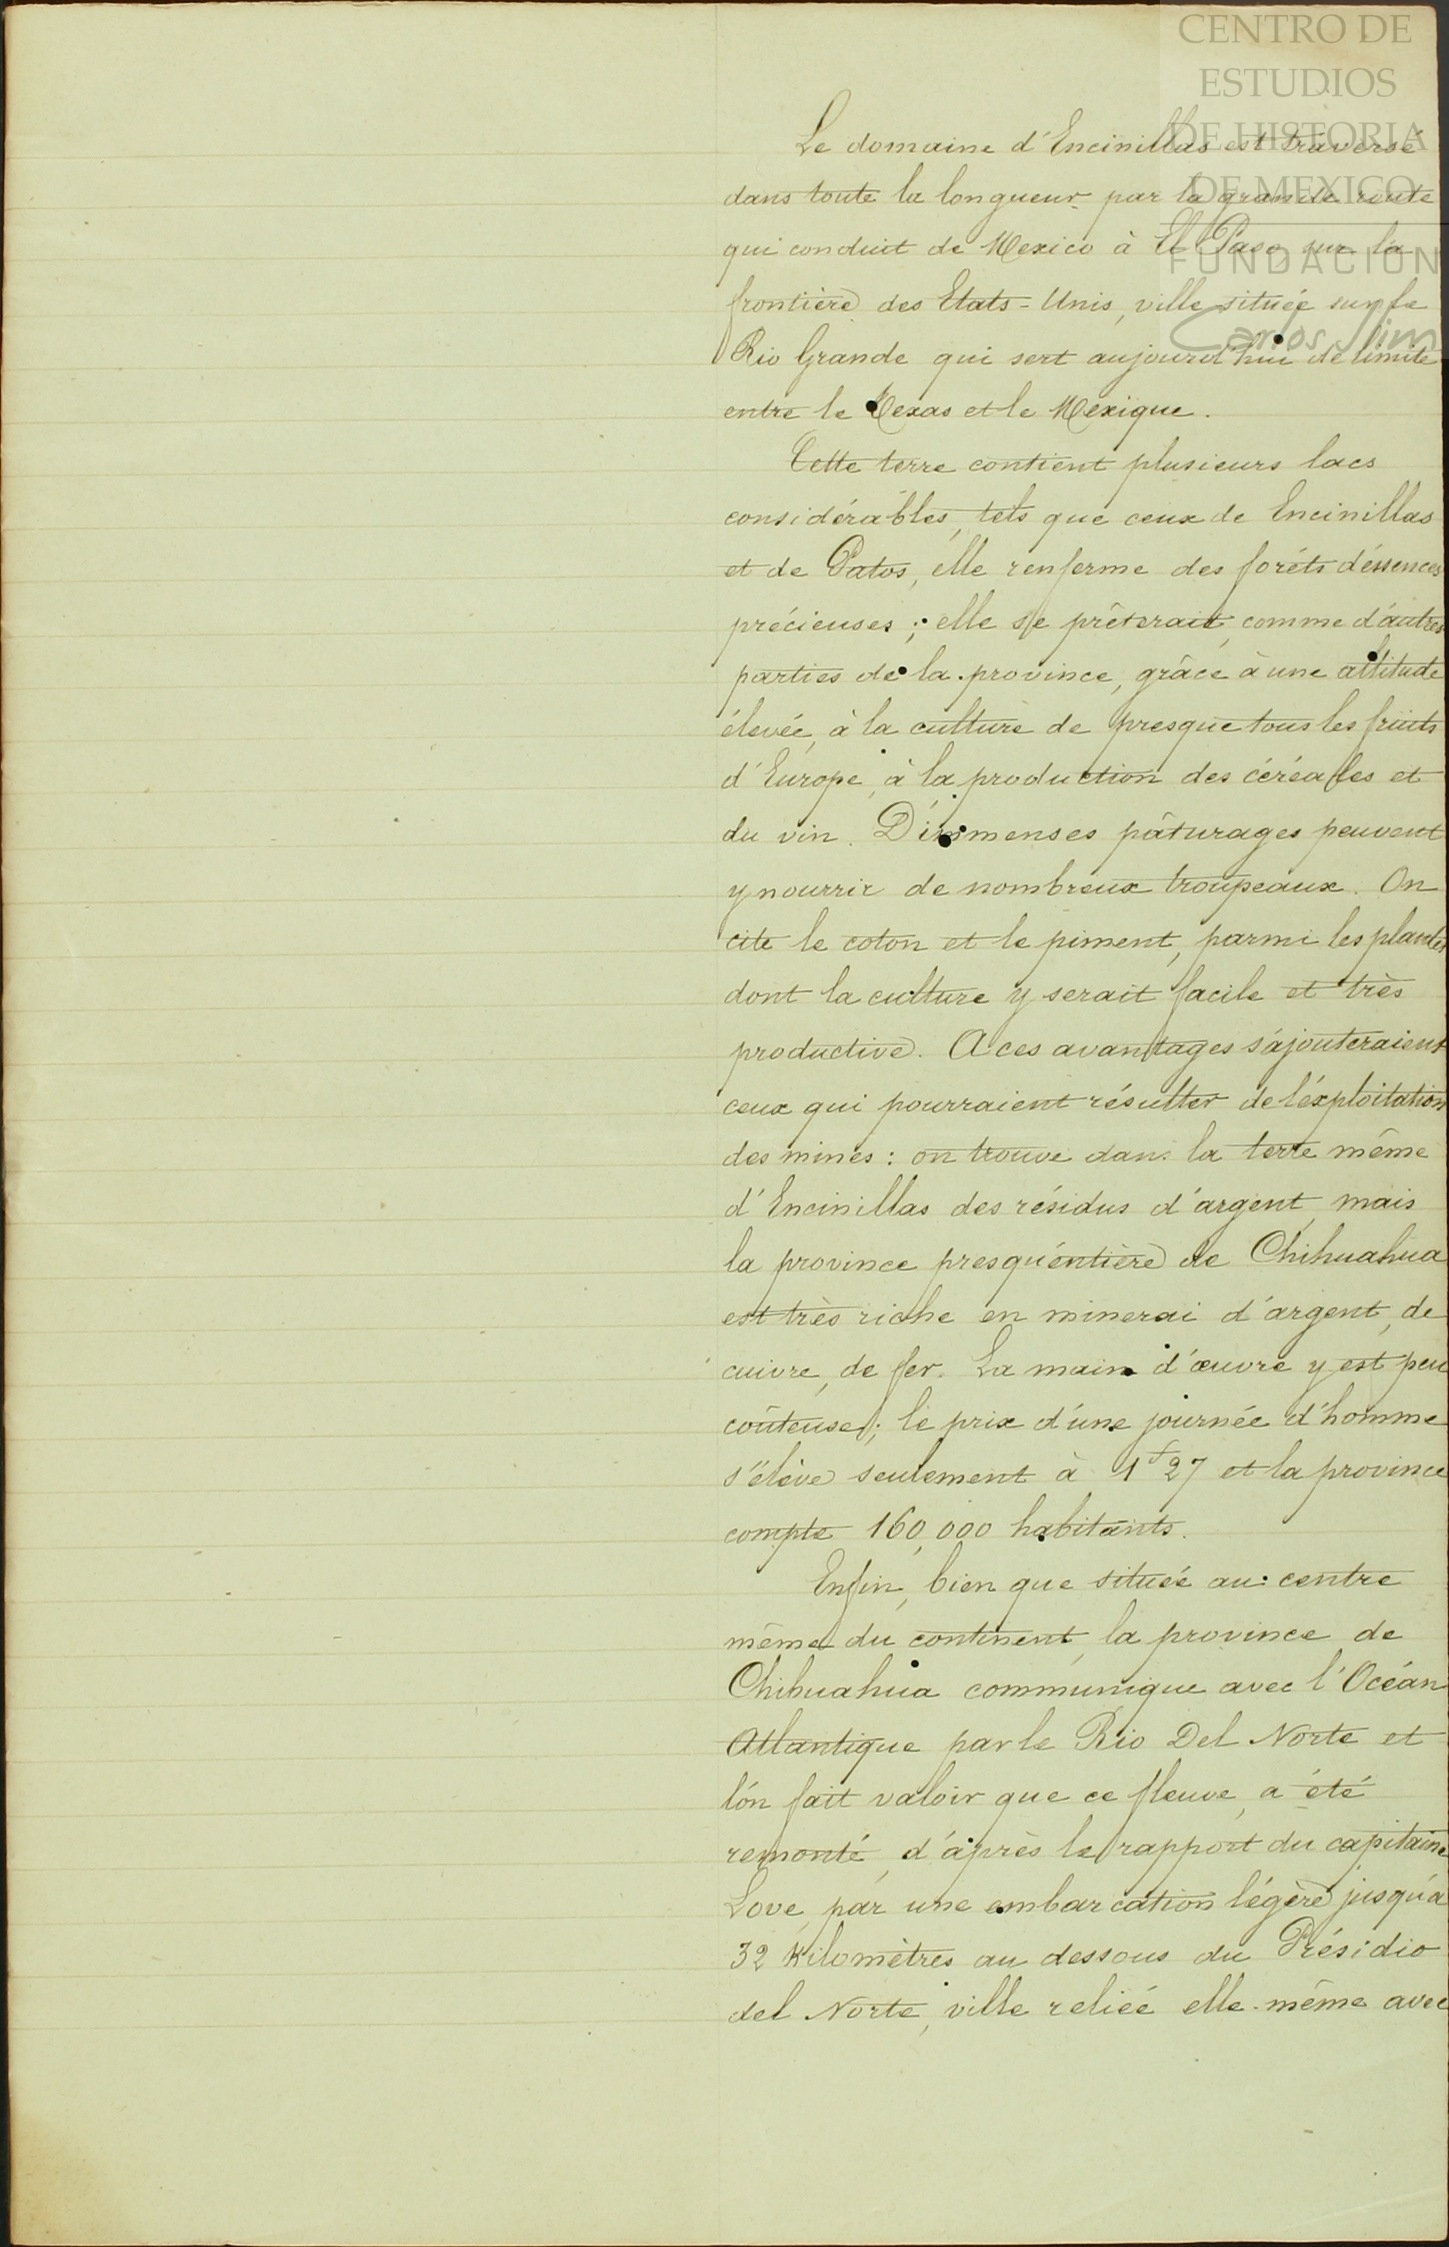 CENTRO DE
ESTUDIOS
DE HISTORIA
DE MEXICO
FUNDACION
Carlos Slim
Le domaine d'Encinillas est traversé
dans toute la longueur par la grande route
qui conduit de Mexico à El Paso sur la
frontière des Etats-Unis, ville située sur le
Rio Grande qui sert aujourd'hui de limite
entre le Texas et le Mexique.
Cette terre contient plusieurs lacs
considérables, tels que ceux de Encinillas
et de Patos, elle renferme des forêts d'éssences
précieuses ; elle se prêterait, comme d'autres
parties de la province, grâce à une altitude
élevée, à la culture de presque tous les fruits
d'Europe, à la production des céréales et
du vin. D'immenses pâturages peuvent
y nourrir de nombreux troupeaux. On
cite le coton et le piment, parmi les plantes
dont la culture y serait facile et très
productive. A ces avantages s'ajouteraient
ceux qui pourraient résulter de l'éxploitation
des mines : on trouve dans la terre même
d'Encinillas des résidus d'argent, mais
la province presqu'entière de Chihuahua
est très riche en minerai d'argent, de
cuivre, de fer. La main d'œuvre y est peu
coûteuse ; le prix d'une journée d'homme
s'élève seulement à 1f 27 et la province
compte 160,000 habitants.
Enfin, bien que située au centre
même du continent, la province de
Chihuahua communique avec l'Océan
Atlantique par le Rio Del Norte et
l'on fait valoir que ce fleuve, a été
remonté, d'après le rapport du capitaine
Love, par une embarcation légère jusqu'à
32 Kilomètres au dessous du Présidio
del Norte, ville reliéé elle-même avec